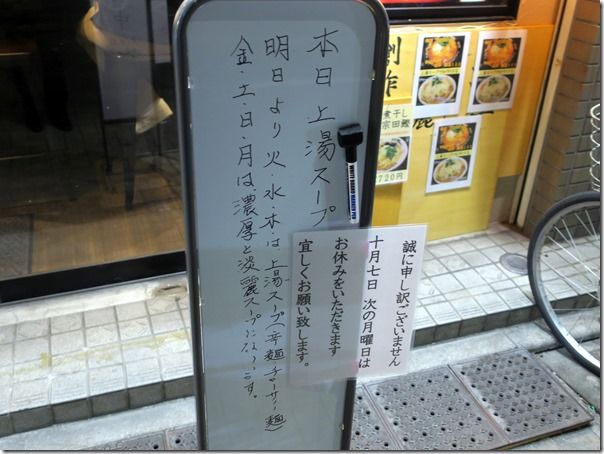 本日 上湯スープ
明日より火・水・木・は上湯スープ(辛麺チャーサイ麺)
金・土・日・月は、濃厚と淡麗スープになります。
WHITE BOARD MARKER
誠に申し訳ございません
十月七日 次の月曜日は
お休みをいただきます
宜しくお願い致します。
創作
麺
煮干し
宗田鰹
720円